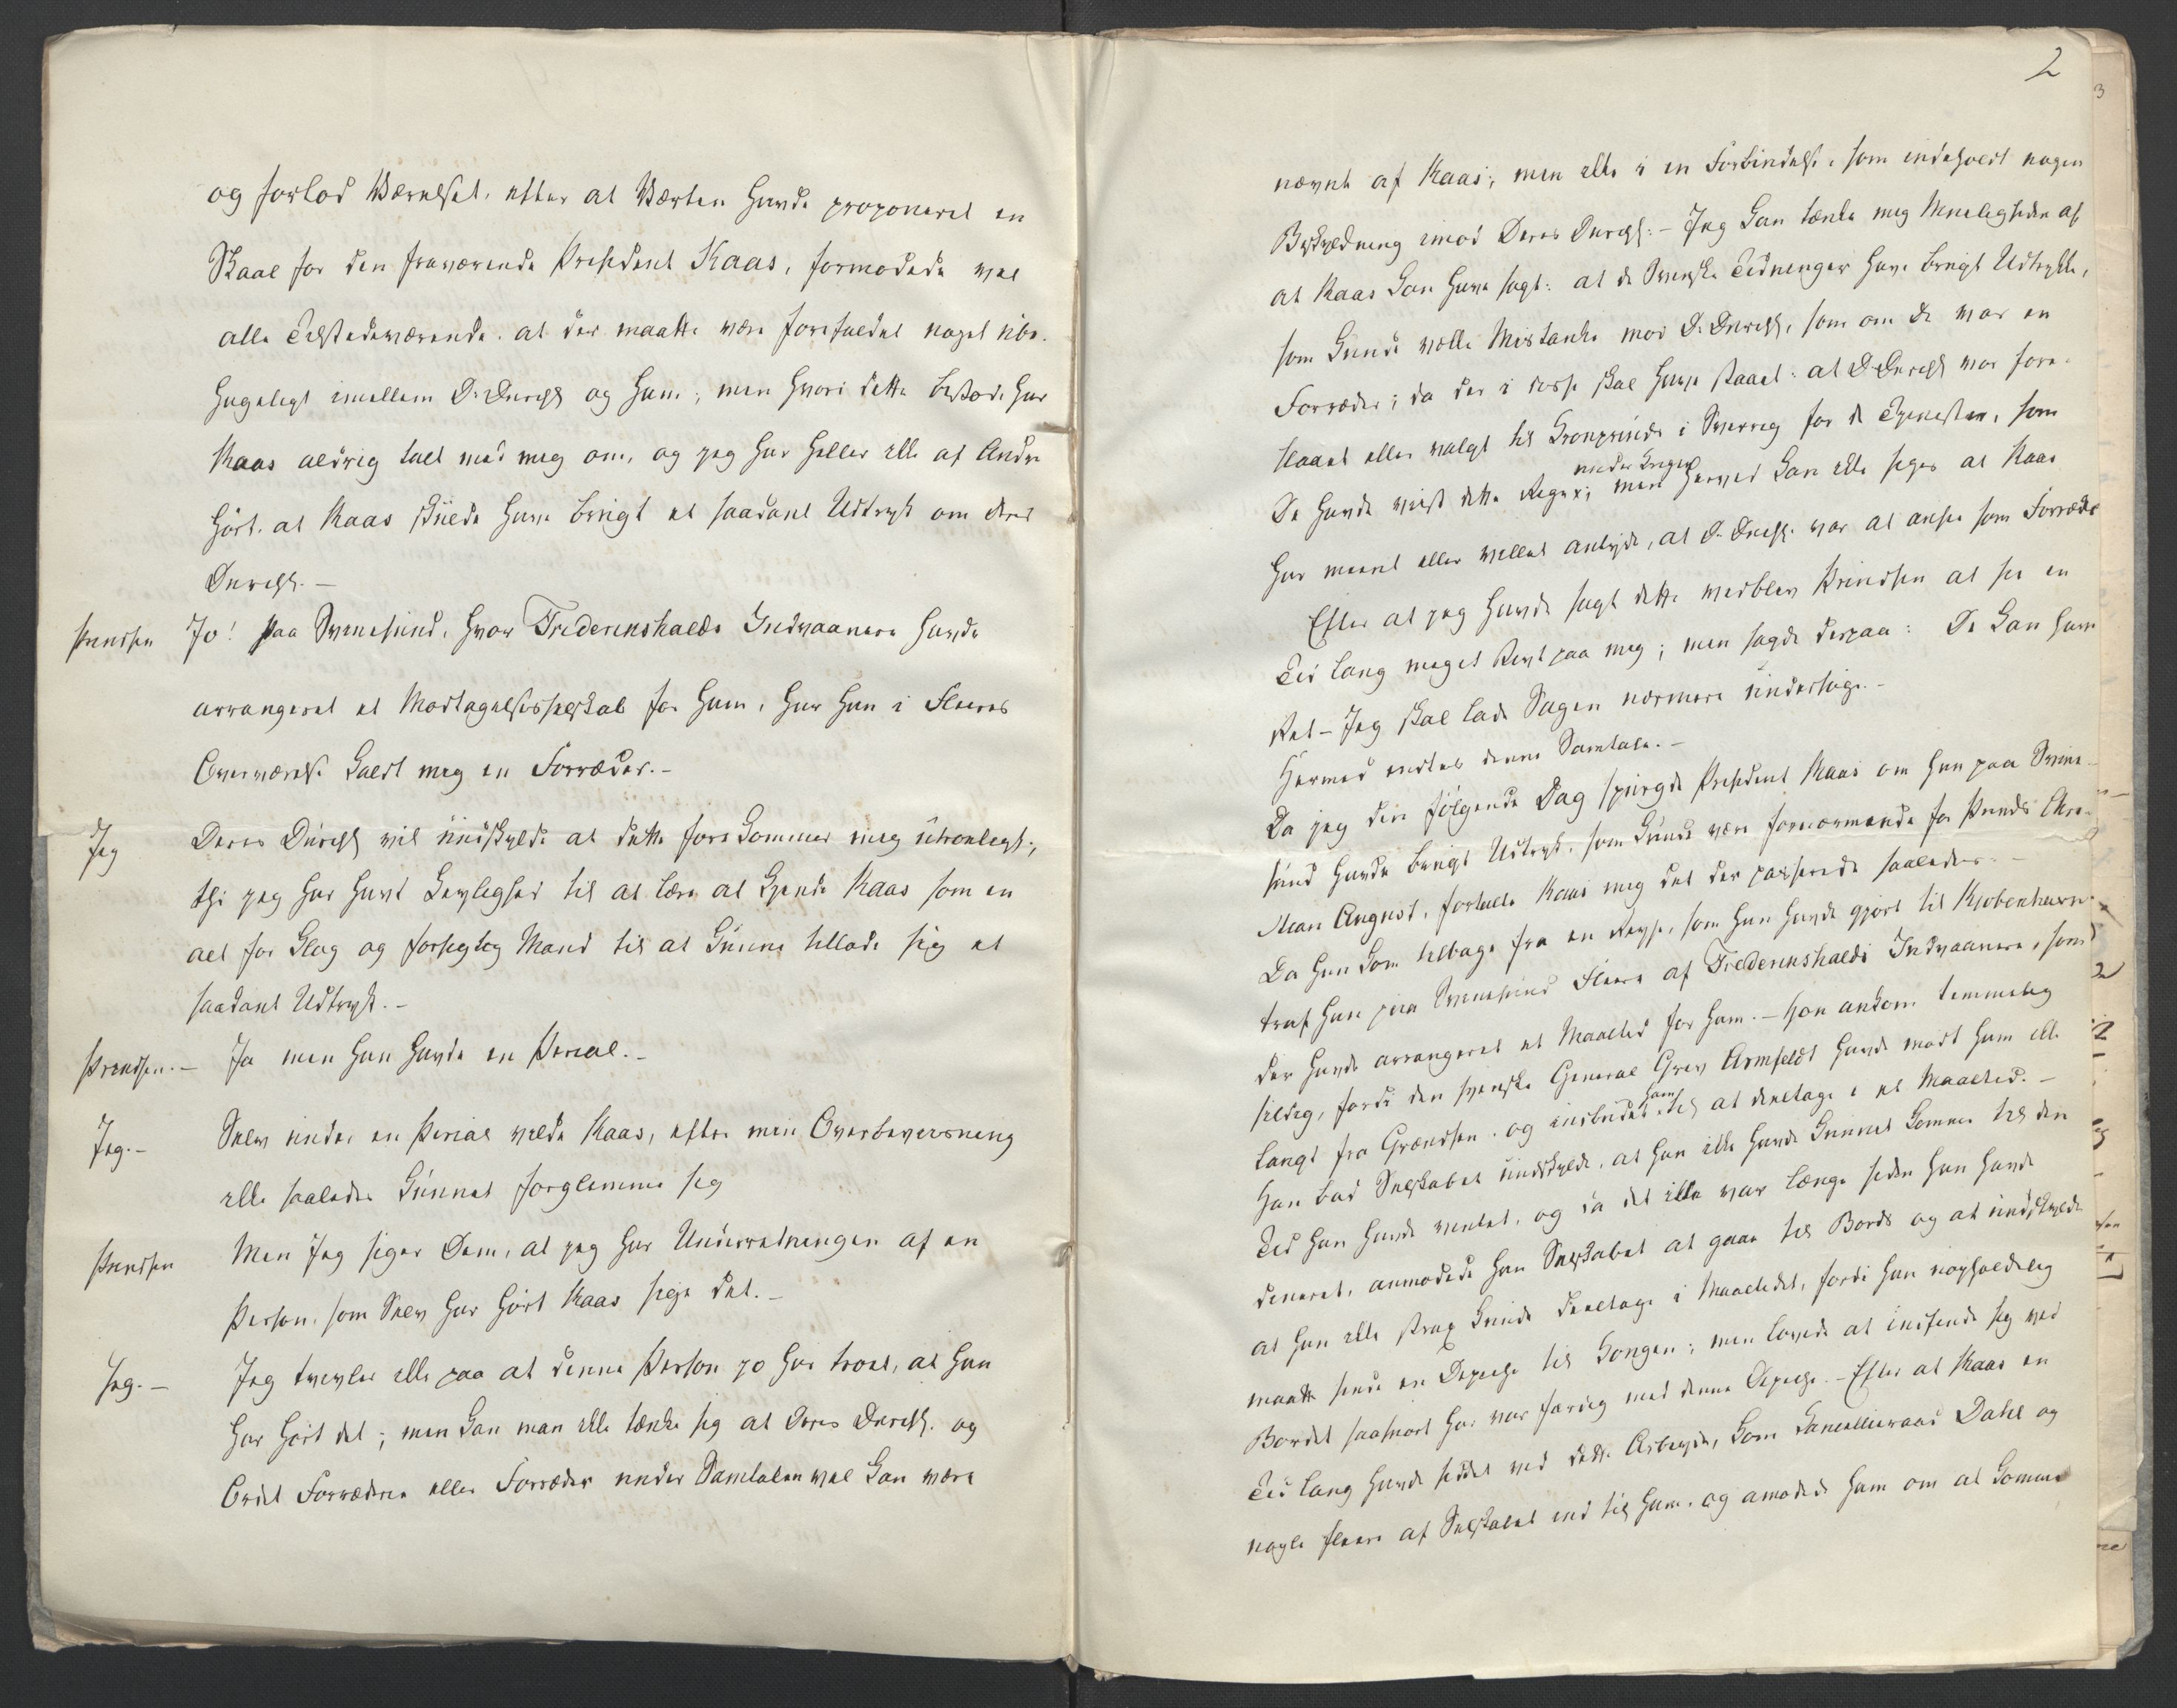 og forlod Værelset, efter at Værten havde proponeret en
Skaal for den fraværende Præsident Kaas, formodede vel
alle Tilstedeværende, at der maatte være forefaldet noget ube-
hageligt imellem D. Durchl. og ham; men hvori dette bestod, har
Kaas aldrig talt med mig om, og jeg har heller ikke af Andre
hört, at Kaas skulde have brugt et saadant Udtryk om deres
Durchl. —
Prindsen Jo! Paa Svinesund, hvor Frederikshalds Indvaanere havde
arrangeret et Modtagelsesselskab for ham, har han i Fleeres
Overværelse kaldt mig en Forræder. —
Jeg Deres Durchl. vil undskylde at dette forekommer mig utroeligt;
thi jeg har havt Leylighed til at lære at kjende Kaas som en
alt for klog og forsigtig Mand til at kunne tillade sig et
saadant Udtryk. —
Prindsen. — Ja men han havde en Perial. —
Jeg. — Selv under en Perial vilde Kaas, efter min Overbeviisning
ikke saaledes kunnet forglemme sig
Prindsen Men Jeg siger Dem, at jeg har Underretningen af en
Person, som Selv har hört Kaas sige det. —
Jeg. — Jeg tvivler ikke paa at denne Person jo har troet, at han
har hört det; men kan man ikke tænke sig at Deres Durchl. og
Ordet Forræderie eller Forræder under Samtalen vel kan være
2
nævnt af Kaas; men ikke i en Forbindelse, som indeholdt nogen
Beskyldning imod Deres Durchl: — Jeg kan tænke mig Mueligheden af
at Kaas kan have sagt: at de Svenske Tidninger have brugt Udtrykke,
som kunde vække Mistanke mod D. Durchl. som om De var en
Forræder; da der i disse skal have staaet: at D. Durchl var fore-
slaaet eller valgt til Kronprinds i Sverrig for de Tjenester, som
De havde viist dette Rige under Krigen; men herved kan ikke siges at Kaas
har meent eller villet antyde, at D. Durchl. var at ansee som Forræder
Efter at jeg havde sagt dette vedblev Prindsen at see en
Tid lang meget stivt paa mig; men sagde derpaa: De kan have
Ret — Jeg skal lade Sagen nærmere undersöge. —
Hermed endtes denne Samtale. —
Da jeg den fölgende Dag spurgte Præsident Kaas om han paa Svine-
sund havde brugt Udtryk, som kunde være fornærmende for Prinds Chri-
stian August, fortalte Kaas mig det der passerede saaledes: —
Da han kom tilbage fra en Reyse, som han havde gjort til Kjobenhavn
traf han paa Svinesund Fleere af Frederikshalds Indvaanere, som
der havde arrangeret et Maaltid for ham. — Han ankom temmelig
sildig, fordi den svenske General Grev Armfeldt havde mödt ham ikke
langt fra Grændsen, og indbudet ham til at deeltage i et Maaltid. —
Han bad Selskabet undskylde, at han ikke havde kunnet komme til den
Tid han havde ventet, og da det ikke var længe siden han havde
dineret, anmodede han Selskabet at gaae til Bords og at undskylde
at han ikke strax kunde deeltage i Maaltidet, fordi han uopholdelig
maatte sende en Depeche til Kongen; men lovede at indfinde sig ved
Bordet saasnart han var færdig med denne Depeche. — Efter at Kaas en
Tid lang havde siddet ved dette Arbeyde, kom Cancellieraad Dahl og
nogle fleere af Selskabet ind til ham, og amodede ham om at komme